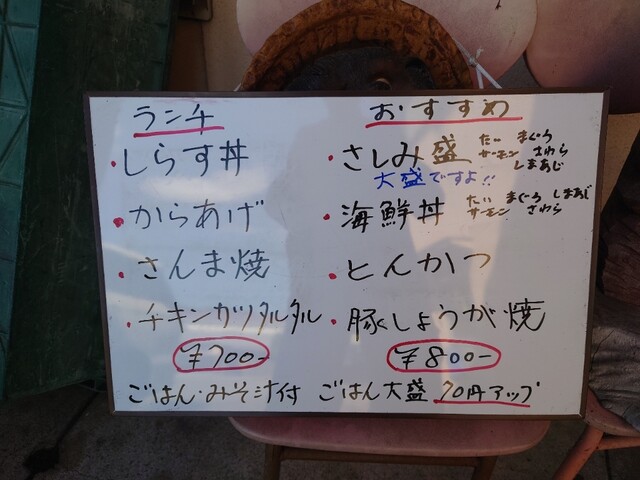 ランチ
・しらす丼
・からあげ
・さんま焼
・チキンカツタルタル
¥700-
おすすめ
・さしみ盛 たい まぐろ
サーモン さわら
しまあじ
大盛ですよ!!
・海鮮丼 たい まぐろ しまあじ
サーモン さわら
・とんかつ
・豚しょうが焼
¥800-
ごはん・みそ汁付 ごはん大盛 70円アップ